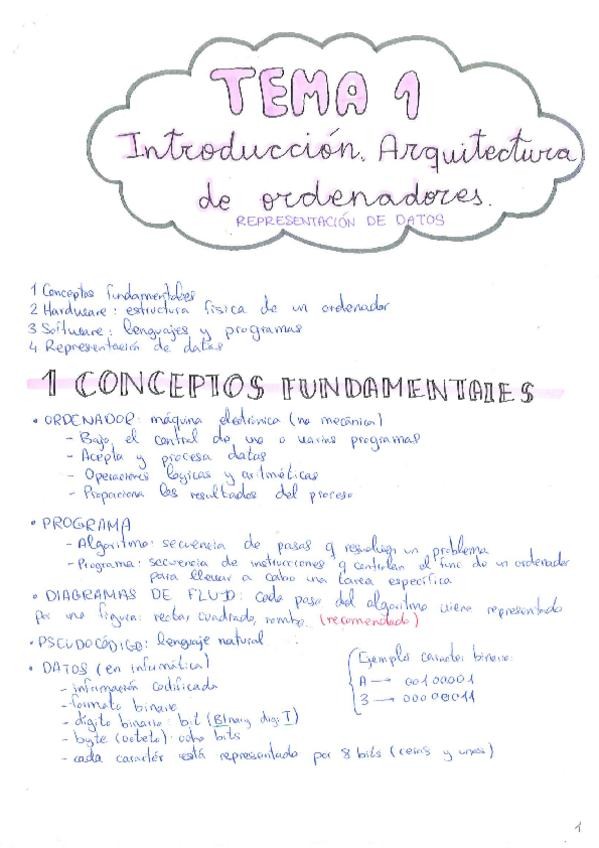 TEMA 1
Introducción. Arquitectura
de ordenadores.
REPRESENTACIÓN DE DATOS
1 Conceptos fundamentales
2 Hardware: estructura física de un ordenador
3 Software: lenguajes y programas
4 Representación de datos
1 CONCEPTOS FUNDAMENTALES
• ORDENADOR: máquina electrónica (no mecánica)
- Bajo el control de uno o varios programas
- Acepta y procesa datos
- Operaciones lógicas y aritméticas
- Proporciona los resultados del proceso
• PROGRAMA
- Algoritmo: secuencia de pasos q resuelven un problema
- Programa: secuencia de instrucciones q controlan el func de un ordenador
para llevar a cabo una tarea específica
• DIAGRAMAS DE FLUJO: Cada paso del algoritmo viene representado
por una figura: rectan, cuadrado, rombo. (recomendado)
• PSEUDOCÓDIGO: lenguaje natural
• DATOS (en informática)
- información codificada
- formato binario
- dígito binario: bit (BInary digIT)
- byte (octeto): ocho bits
- cada carácter está representado por 8 bits (ceros y unos)
Ejemplo caracter binario:
A → 00100001
3 → 00000011
1